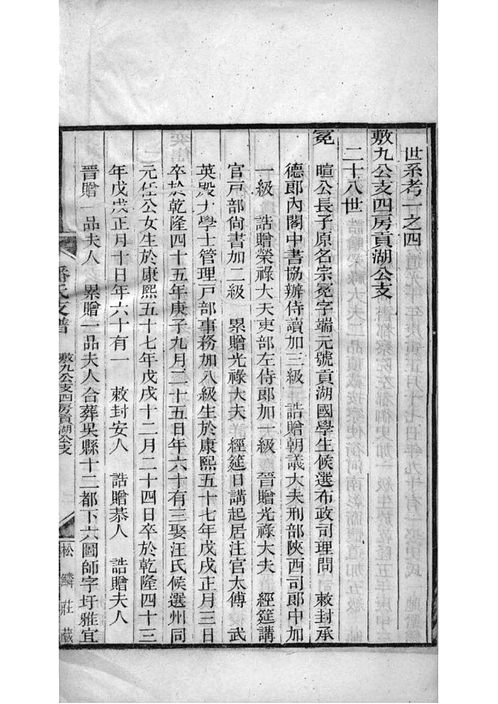 世系考一之四
敷九公支四房貢湖公支
二十八世
冕　暄公長子原名宗冕字端元號貢湖國學生候選布政司理問　敕封承
德郎內閣中書協辦侍讀加三級　誥贈朝議大夫刑部陝西司郎中加
一級　誥贈榮祿大夫吏部左侍郎加一級　晉贈光祿大夫　經筵講
官戶部尚書加二級　累贈光祿大夫　經筵日講起居注官太傅　武
英殿大學士管理戶部事務加八級生於康熙五十七年戊戌正月三日
卒於乾隆四十五年庚子九月二十五日年六十有三娶汪氏候選州同
元任公女生於康熙五十七年戊戌十二月二十四日卒於乾隆四十三
年戊戌正月十日年六十有一　敕封安人　誥贈恭人　誥贈夫人
晉贈一品夫人　累贈一品夫人合葬吳縣十二都下六圖師字圩雅宜
潘氏支譜　敷九公支四房貢湖公支　松鱗莊藏